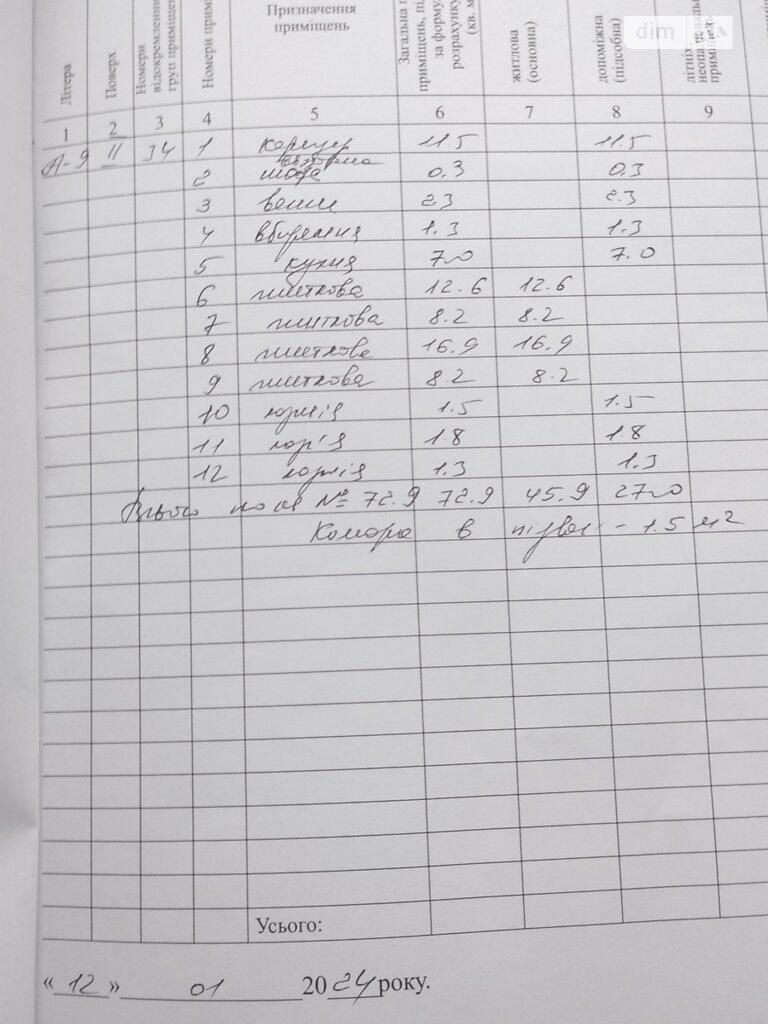 Літера
Поверх
Номери відокремлених груп приміщень
Номери приміщ
Призначення приміщень
Загальна п
приміщень, під
за форму
розрахунку
(кв. м
житлова
(основна)
допоміжна
(підсобна)
літніх
dim
1 2 3 4 5 6 7 8 9
А-9 II 34 1 коридор 11.5 11.5
2 вбудована шафа 0.3 0.3
3 ванна 2.3 2.3
4 вбиральня 1.3 1.3
5 кухня 7.0 7.0
6 житлова 12.6 12.6
7 житлова 8.2 8.2
8 житлова 16.9 16.9
9 житлова 8.2 8.2
10 лоджія 1.5 1.5
11 лоджія 1.8 1.8
12 лоджія 1.3 1.3
Всього по кв № 72.9 72.9 45.9 27.0
Комора в підвалі - 1.5 м2
Усього:
« 12 » 01 20 24 року.